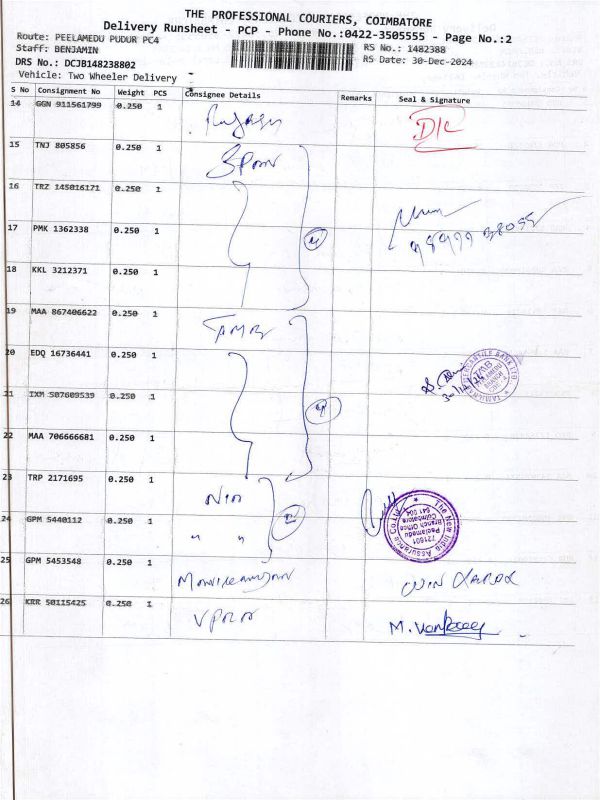 THE PROFESSIONAL COURIERS, COIMBATORE
Delivery Runsheet - PCP - Phone No.:0422-3505555 - Page No.:2
Route: PEELAMEDU PUDUR PC4
RS No.: 1482388
Staff: BENJAMIN
RS Date: 30-Dec-2024
DRS No.: DCJB148238802
Vehicle: Two Wheeler Delivery
S No Consignment No Weight PCS Consignee Details Remarks Seal & Signature
14 GGN 911561799 0.250 1 D/C
15 TNJ 805856 0.250 1
16 TRZ 145016171 0.250 1
17 PMK 1362338 0.250 1
18 KKL 3212371 0.250 1
19 MAA 867406622 0.250 1 TAMB
20 EDQ 16736441 0.250 1
21 IXM 507609539 0.250 1
22 MAA 706666681 0.250 1
23 TRP 2171695 0.250 1
24 GPM 5440112 0.250 1 " "
The New India Assurance Co. Ltd.
721601
Peelamedu
Branch Office
Coimbatore
641 004
25 GPM 5453548 0.250 1
26 KRR 50115425 0.250 1